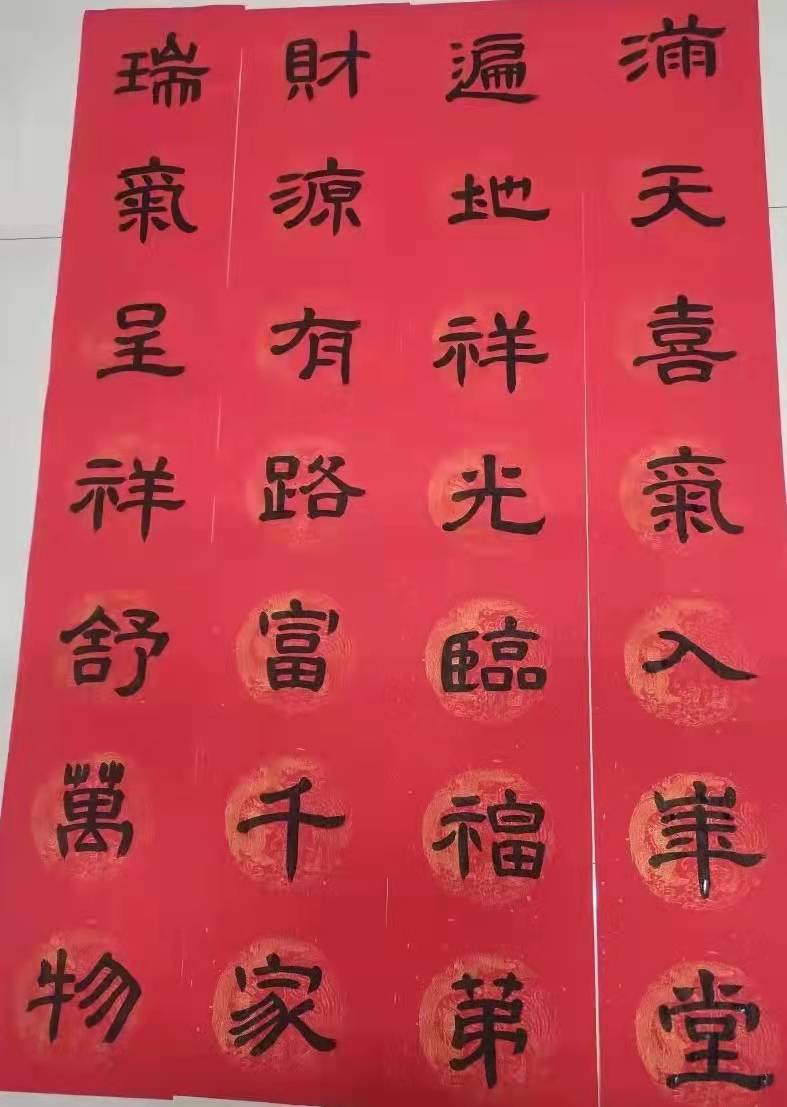 滿天喜氣入華堂
遍地祥光臨福第
財源有路富千家
瑞氣呈祥舒萬物